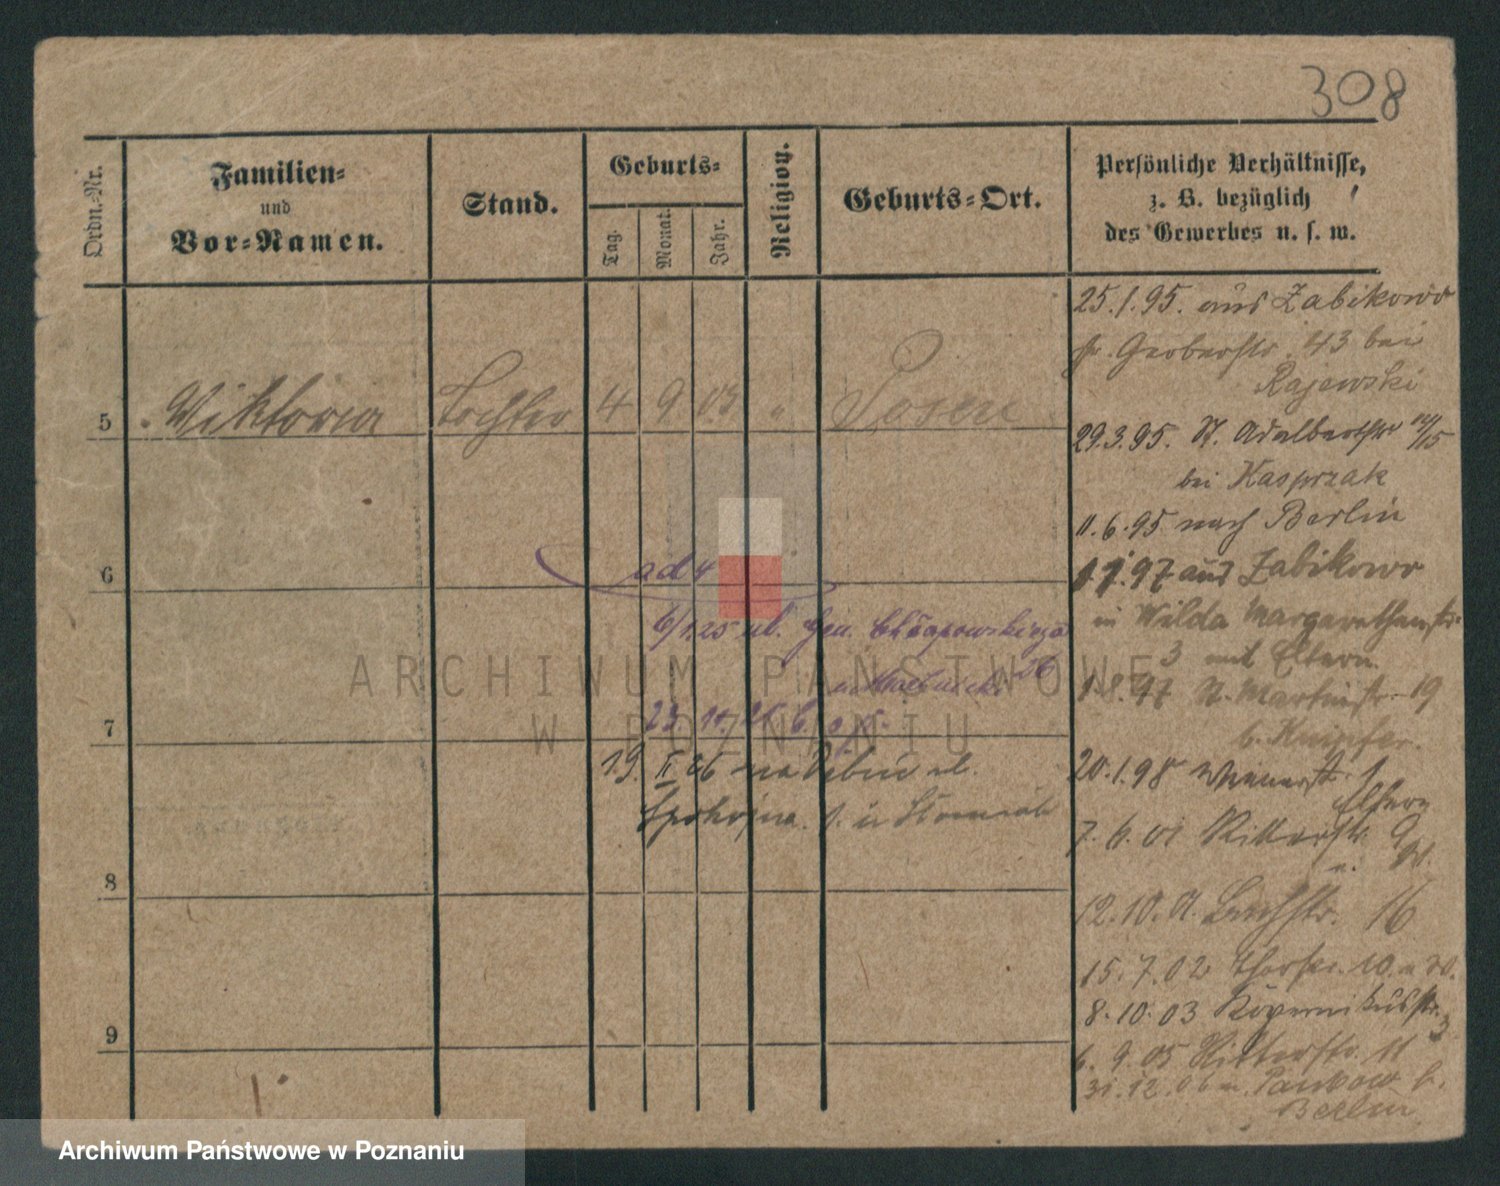 308
Ordn.-Nr.
Familien-
und
Vor-Namen.
Stand.
Geburts-
Tag.
Monat.
Jahr.
Religion.
Geburts-Ort.
Persönliche Verhältnisse,
z. B. bezüglich
des Gewerbes u. s. w.
5 Wiktoria Tochter 4 9 05 " Posen
6
7
8
9
ad 4
6/1.25 ul. Gen. Chłapowskiego
26
23. 10. 26
19. II 26 na Dębiu ul.
Spokojna
25.1.95. aus Zabikowo
Gerberstr. 43 bei
Rajewski
29.3.95. St. Adalbertstr 14/15
bei Kasprzak
11.6.95 nach Berlin
97 aus Zabikowo
in Wilda Margarethenstr.
3 mit Eltern.
97 St. Martinstr. 19
b. Knipfer.
20.1.98 Wienerstr. 1
Eltern
7. 6. 01 Ritterstr. 9
u. W.
12. 10. Bachstr. 16
15. 7. 02 10. u. W.
8. 10. 03 Kopernikusstr. 3
6. 9. 05 Ritterstr. 11
31. 12. 06 n. Pankow b.
Berlin
ARCHIWUM PAŃSTWOWE
W POZNANIU
Archiwum Państwowe w Poznaniu